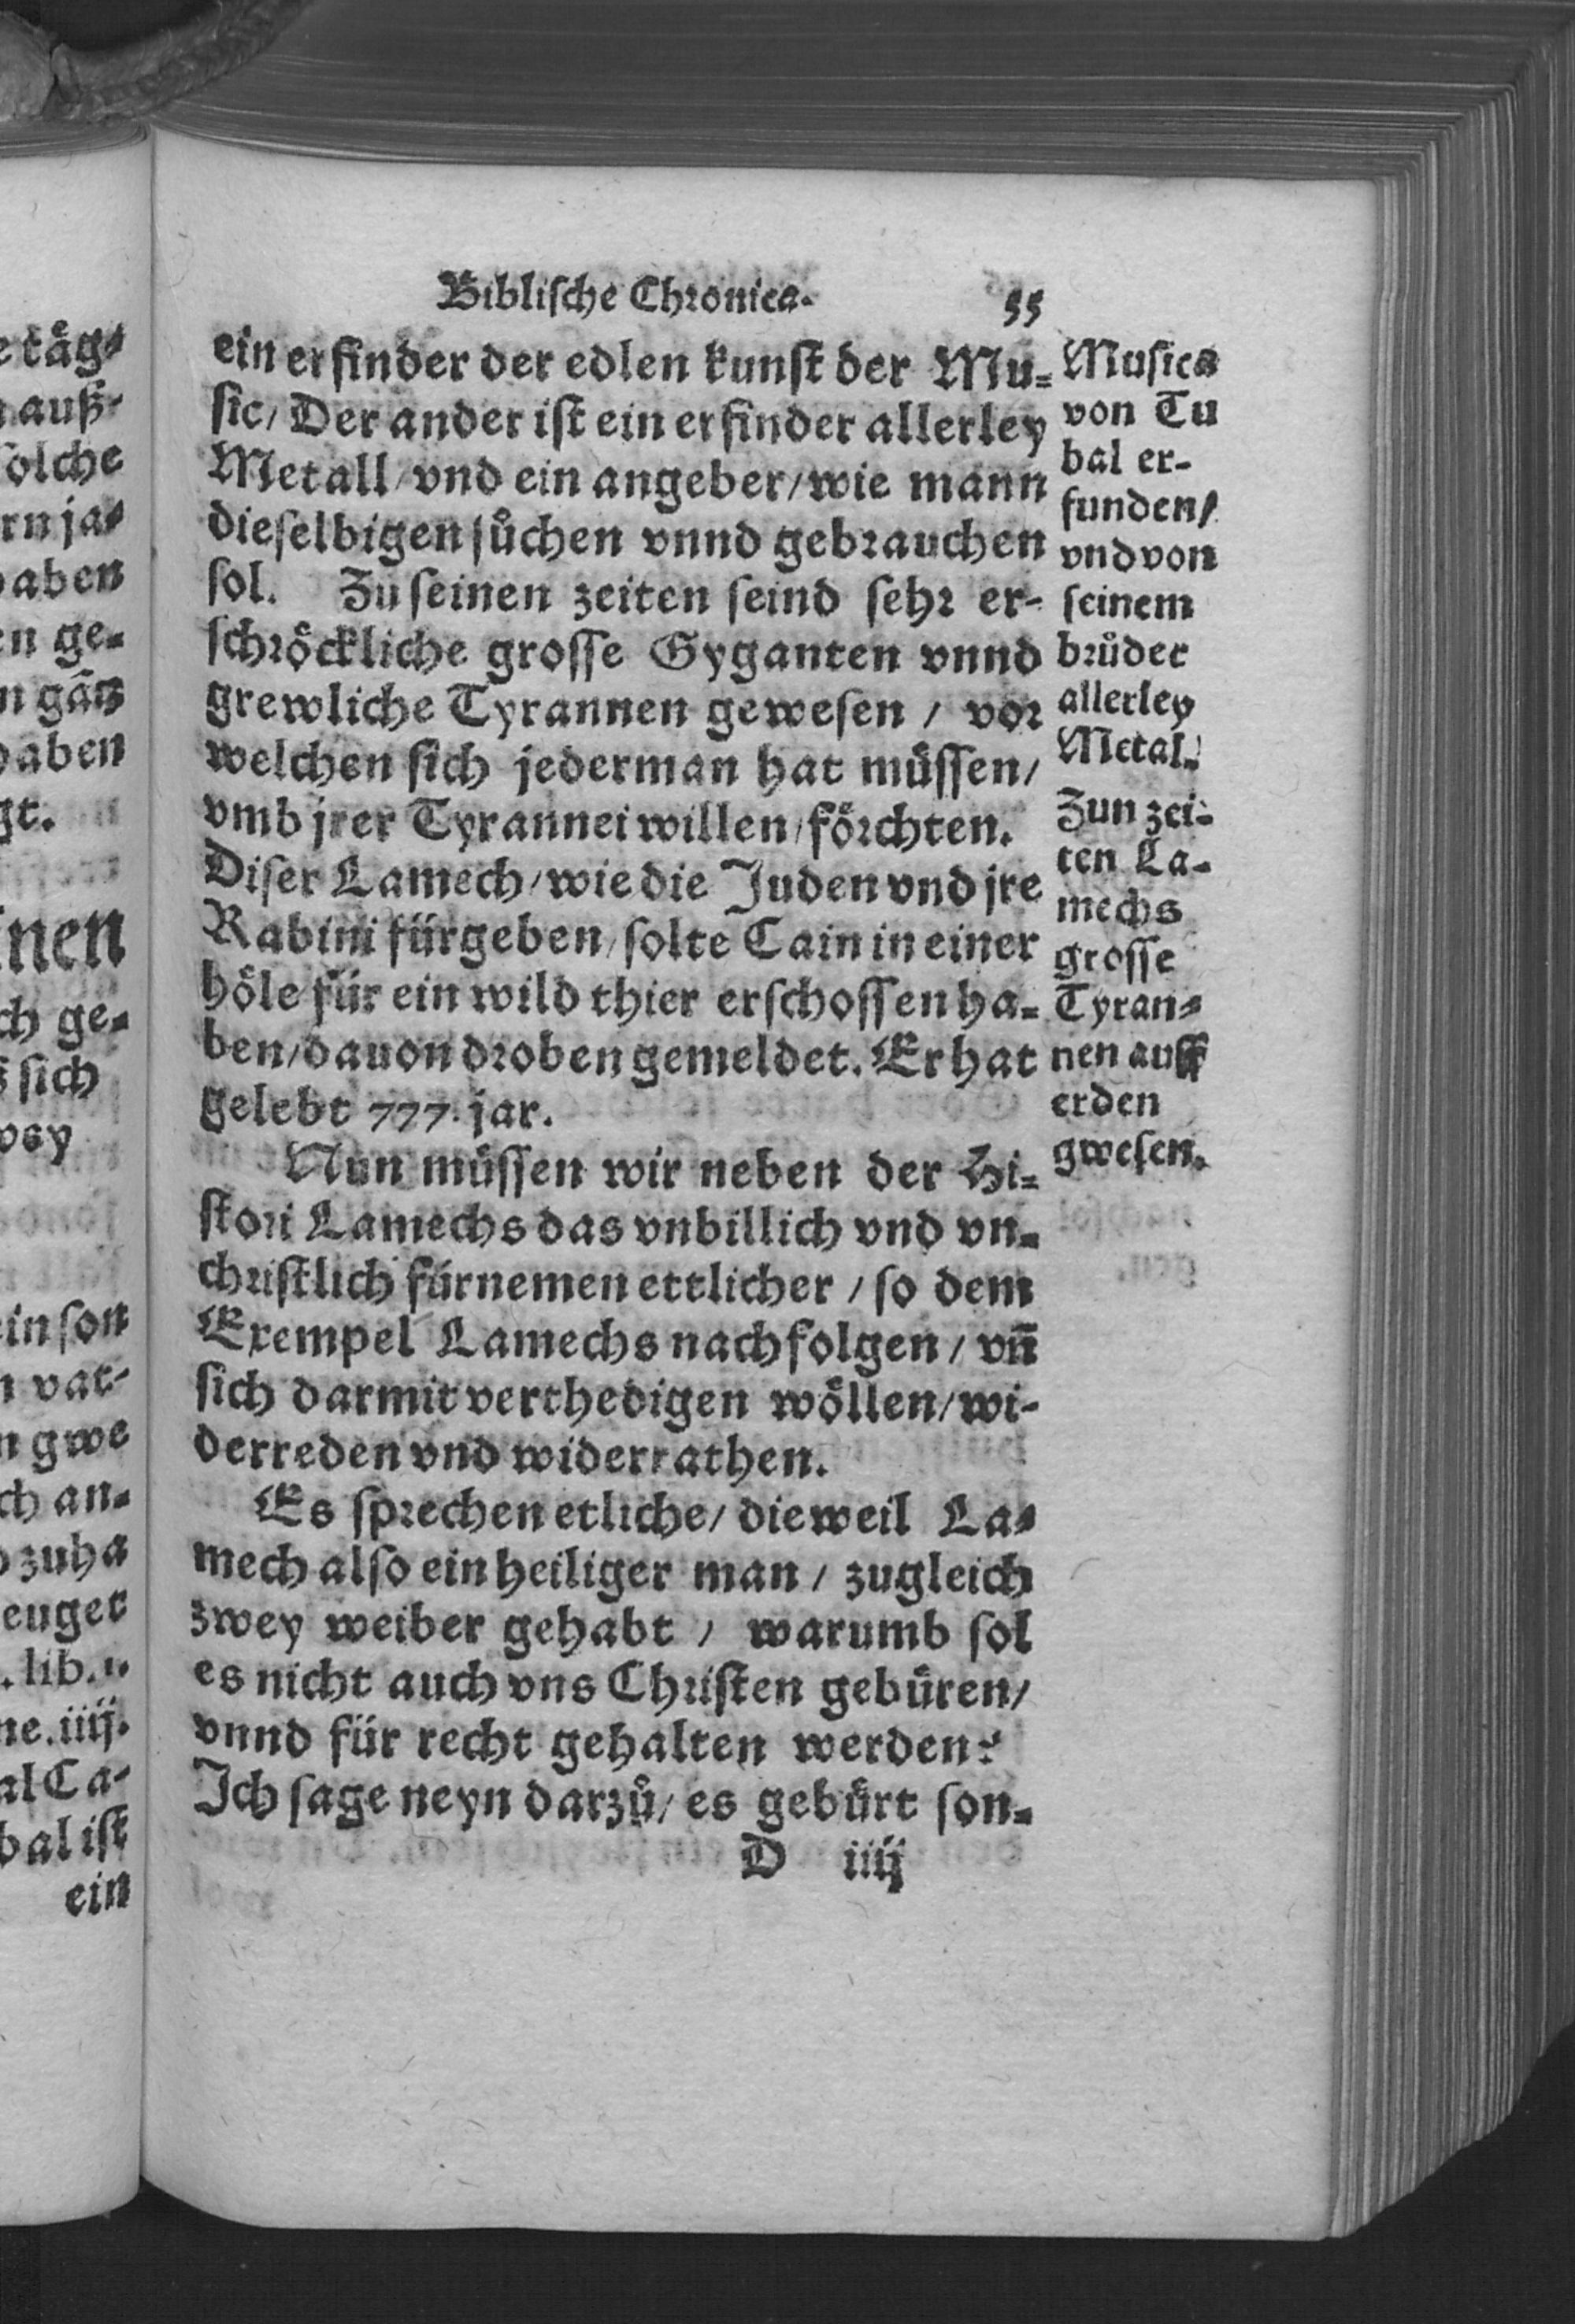 Biblische Chronica. 55
ein erfinder der edlen kunst der Mu-
sic/ Der ander ist ein erfinder allerley
Metall/ vnd ein angeber/ wie mann
dieselbigen sůchen vnnd gebrauchen
sol. Zu seinen zeiten seind sehr er-
schröckliche grosse Gyganten vnnd
grewliche Tyrannen gewesen / vor
welchen sich jederman hat müssen/
vmb jrer Tyrannei willen/ förchten.
Diser Lamech/ wie die Juden vnd jre
Rabini fürgeben/ solte Cain in einer
höle für ein wild thier erschossen ha-
ben/ dauon droben gemeldet. Er hat
gelebt 777. jar.
Nun müssen wir neben der Hi-
stori Lamechs das vnbillich vnd vn-
christlich fürnemen ettlicher / so dem
Exempel Lamechs nachfolgen / vn̄
sich darmit verthedigen wöllen/ wi-
derreden vnd widerrathen.
Es sprechen etliche/ dieweil La-
mech also ein heiliger man / zugleich
zwey weiber gehabt / warumb sol
es nicht auch vns Christen gebüren/
vnnd für recht gehalten werden?
Ich sage neyn darzů/ es gebürt son-
D iiij
Musica
von Tu
bal er-
funden/
vnd von
seinem
brůder
allerley
Metal.
Zun zei-
ten La-
mechs
grosse
Tyran-
nen auff
erden
gwesen.